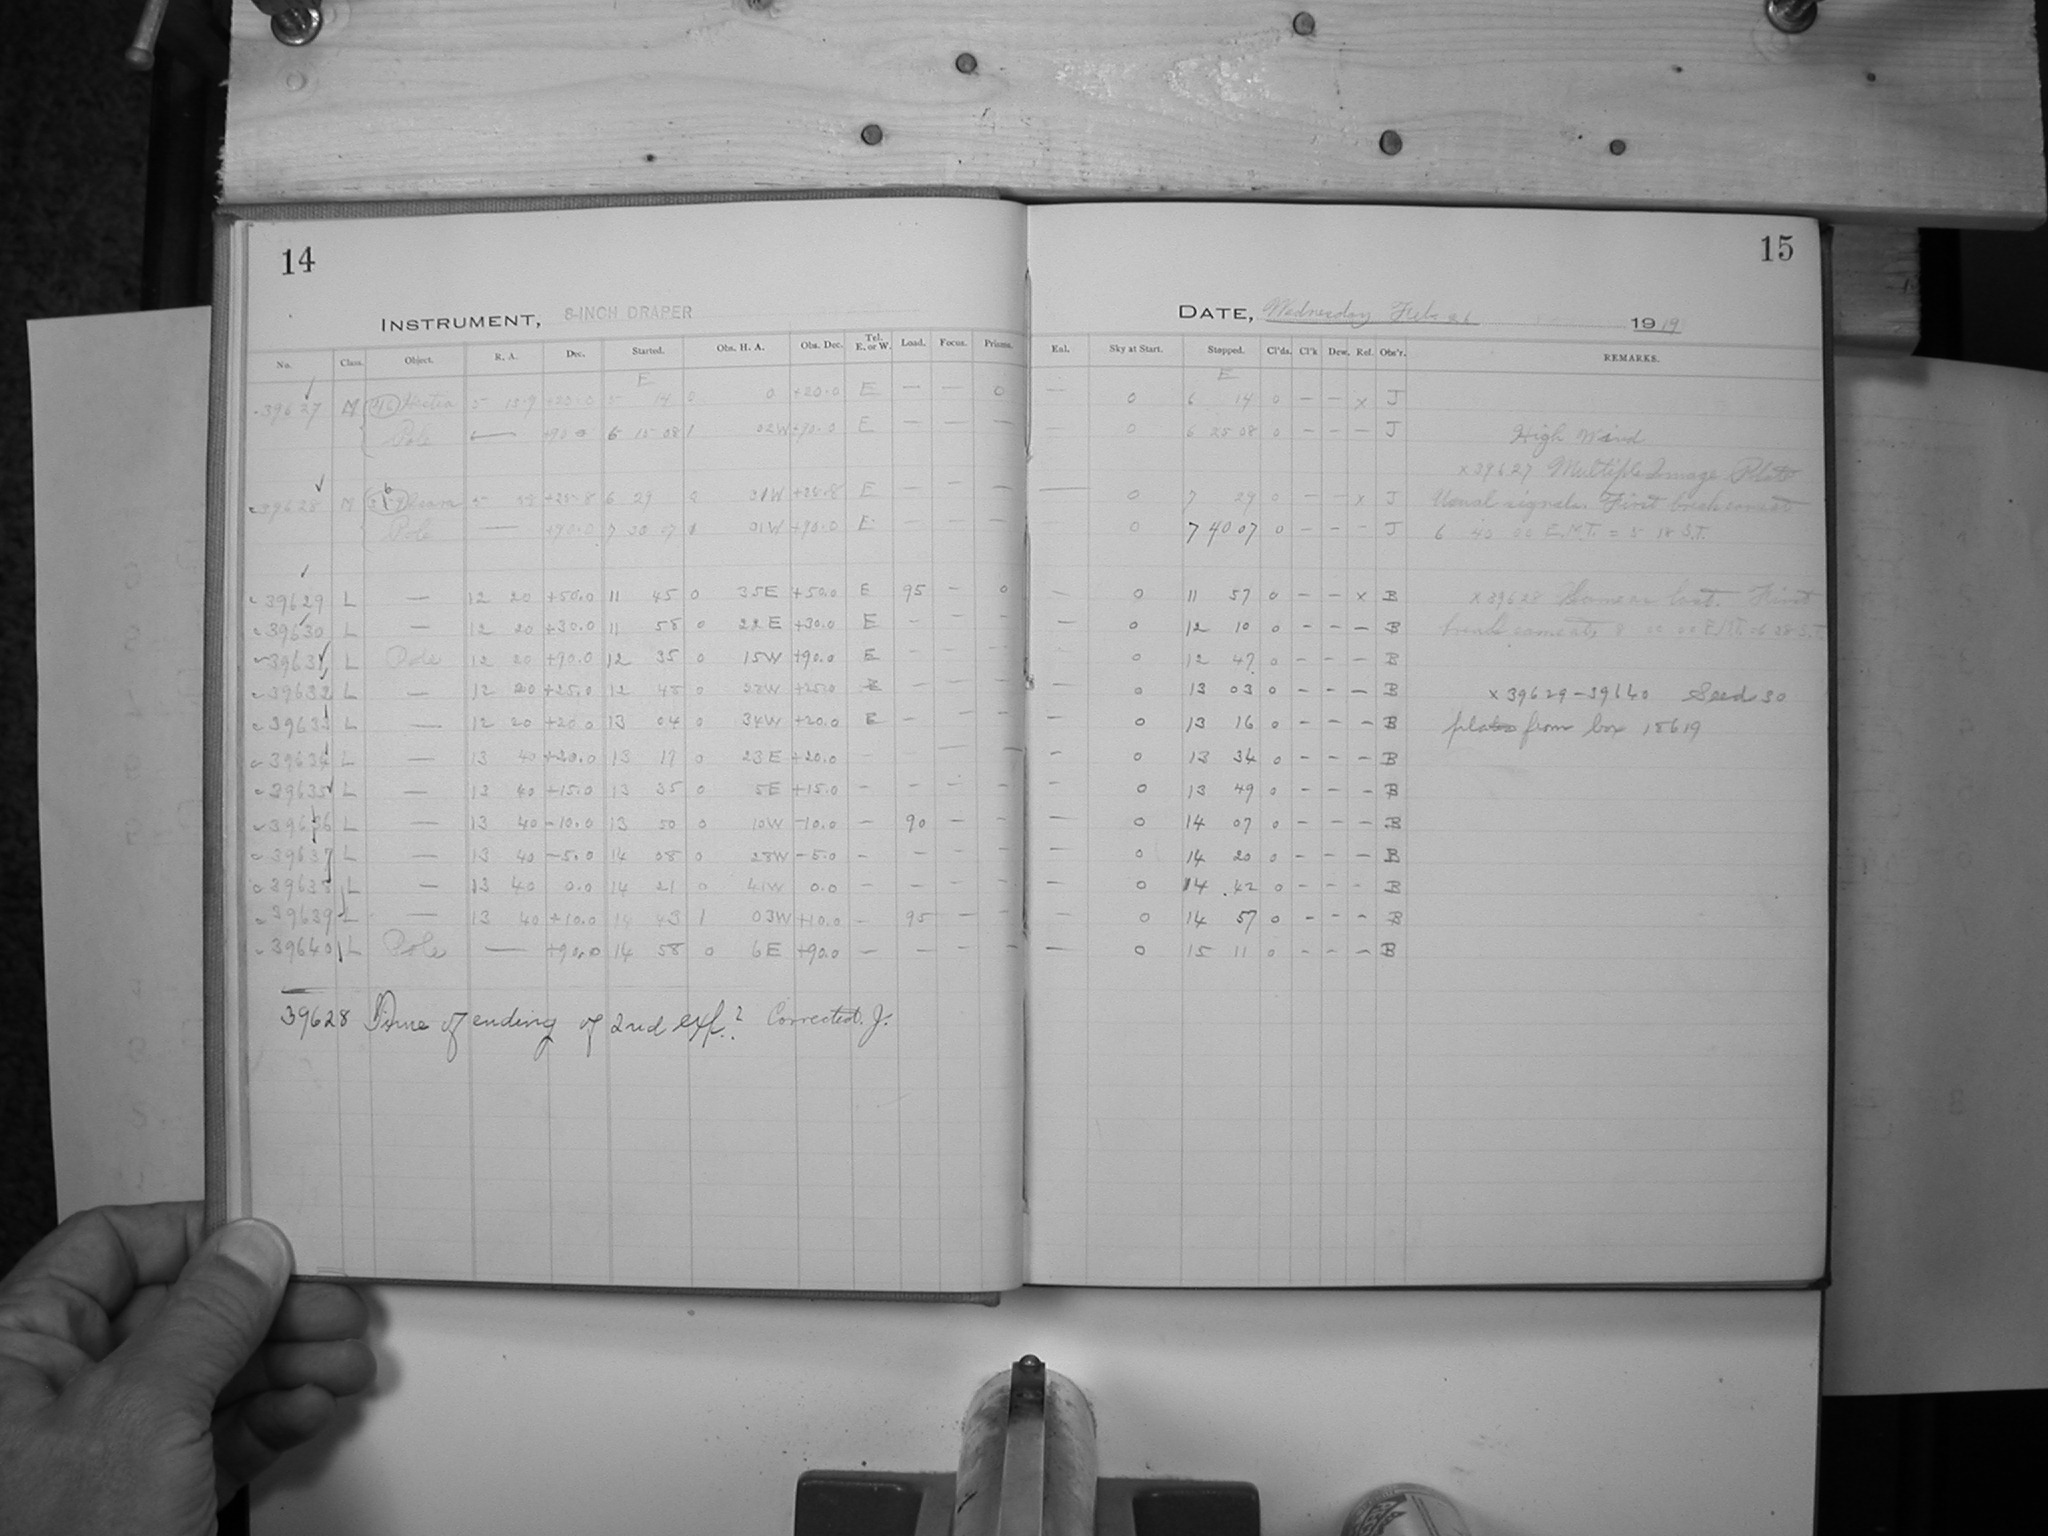 14
15
INSTRUMENT, 8-INCH DRAPER
DATE, Wednesday Feb 26 1919
No. Class. Object. R. A. Dec. Started. Obs. H. A. Obs. Dec. Tel. E. or W. Load. Focus. Prisms. Eal. Sky at Start. Stopped. Cl'ds. Cl'k Dew. Ref. Obs'r. REMARKS.
E E
39627 M 5 15.9 +20.0 5 14 0 0 +20.0 E — — 0 — 0 6 14 0 – – x J
Pole — +90.0 6 15 08 1 02W +90.0 E — — — — 0 6 25 08 0 – – – J High Wind
x39627 Multiple Image Plate
39628 M 6 29 0 31W +25.8 E – – – — 0 7 29 0 – – x J Usual signals. First break came at
Pole — +90.0 7 30 07 1 01W +90.0 E – – – — 0 7 40 07 0 – – – J 6 40 00 E.M.T. = 5 18 S.T.
39629 L — 12 20 +50.0 11 45 0 35E +50.0 E 95 – 0 – 0 11 57 0 – – x B x39628 Same as last. First
39630 L — 12 20 +30.0 11 58 0 22E +30.0 E – – – – 0 12 10 0 – – – B break came at 8 00 00
39631 L Pole 12 20 +90.0 12 35 0 15W +90.0 E – – – – 0 12 47 0 – – – B
39632 L — 12 20 +25.0 12 48 0 28W +25.0 E – – – — 0 13 03 0 – – – B x39629-39640 Seed 30
39633 L — 12 20 +20.0 13 04 0 34W +20.0 E – – – — 0 13 16 0 – – – B plates from box 18619
39634 L — 13 40 +20.0 13 17 0 23E +20.0 – — — – 0 13 34 0 – – – B
39635 L — 13 40 +15.0 13 35 0 5E +15.0 – – – – – 0 13 49 0 – – – B
39636 L — 13 40 -10.0 13 50 0 10W -10.0 – 90 – – — 0 14 07 0 – – – B
39637 L — 13 40 -5.0 14 08 0 28W -5.0 – – – – — 0 14 20 0 – – – B
39638 L — 13 40 0.0 14 21 0 41W 0.0 – – – – — 0 14 42 0 – – – B
39639 L — 13 40 +10.0 14 43 1 03W +10.0 – 95 – – – 0 14 57 0 – – – B
39640 L Pole — +90.0 14 58 0 6E +90.0 – – – – — 0 15 11 0 – – – B
39628 Time of ending of 2nd exp.? Corrected. J.